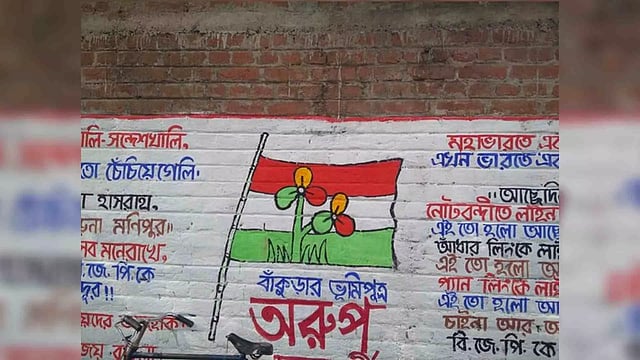 লি-সন্দেশখালি,
তো চেঁচিয়ে গেলি.
হাসরাথ,
না মনিপুর॥
সব মনেরাখে,
.জে.পি.কে
দূর!!
বাঁকুড়ার ভূমিপুত্র
অরূপ
মহাভারতে
এখন ভারতে
"আচ্ছেদি
নোটবন্দীতে লাইন
এই তো হলো আচ্ছে
আঁধার লিনকে লাই
এই তো হলো আ
প্যান লিনকে লাই
এই তো হলো আ
চাইনা আর
বি.জে.পি. কে